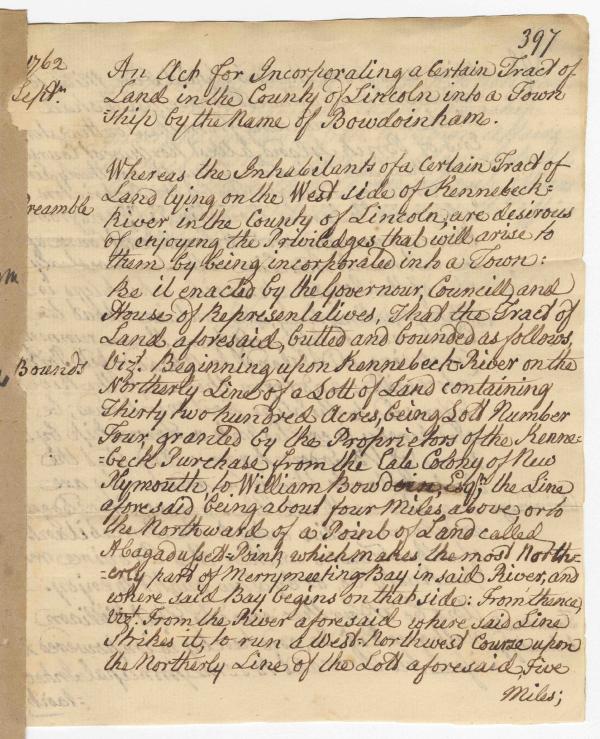 397
1762
Septr.
An Act for Incorporating a Certain Tract of
Land in the County of Lincoln into a Town
ship by the Name of Bowdoinham.
Whereas the Inhabitants of a Certain Tract of
Land lying on the West side of Kennebeck=
Preamble
River in the County of Lincoln, are desirous
of enjoying the Priviledges that will arise to
them by being incorporated into a Town:
Be it enacted by the Governour, Councill and
House of Representatives, That the Tract of
Land aforesaid, butted and bounded as follows,
Bounds
Vizt. Beginning upon Kennebeck River on the
Northerly Line of a Lott of Land containing
Thirty two hundred Acres, being Lott Number
Four, granted by the Proprietors of the Kenne=
=beck Purchase from the late Colony of New
Plymouth, to William Bowdoin, Esqr; the Line
aforesaid being about four Miles above or to
the Northward of a Point of Land called
Abagadussett-Point, which makes the most North=
=erly part of Merrymeeting Bay in said River, and
where said Bay begins on that side: From thence,
vizt. From the River aforesaid where said Line
Strikes it, to run a West-Northwest Course upon
the Northerly Line of the Lott aforesaid, Five
Miles;